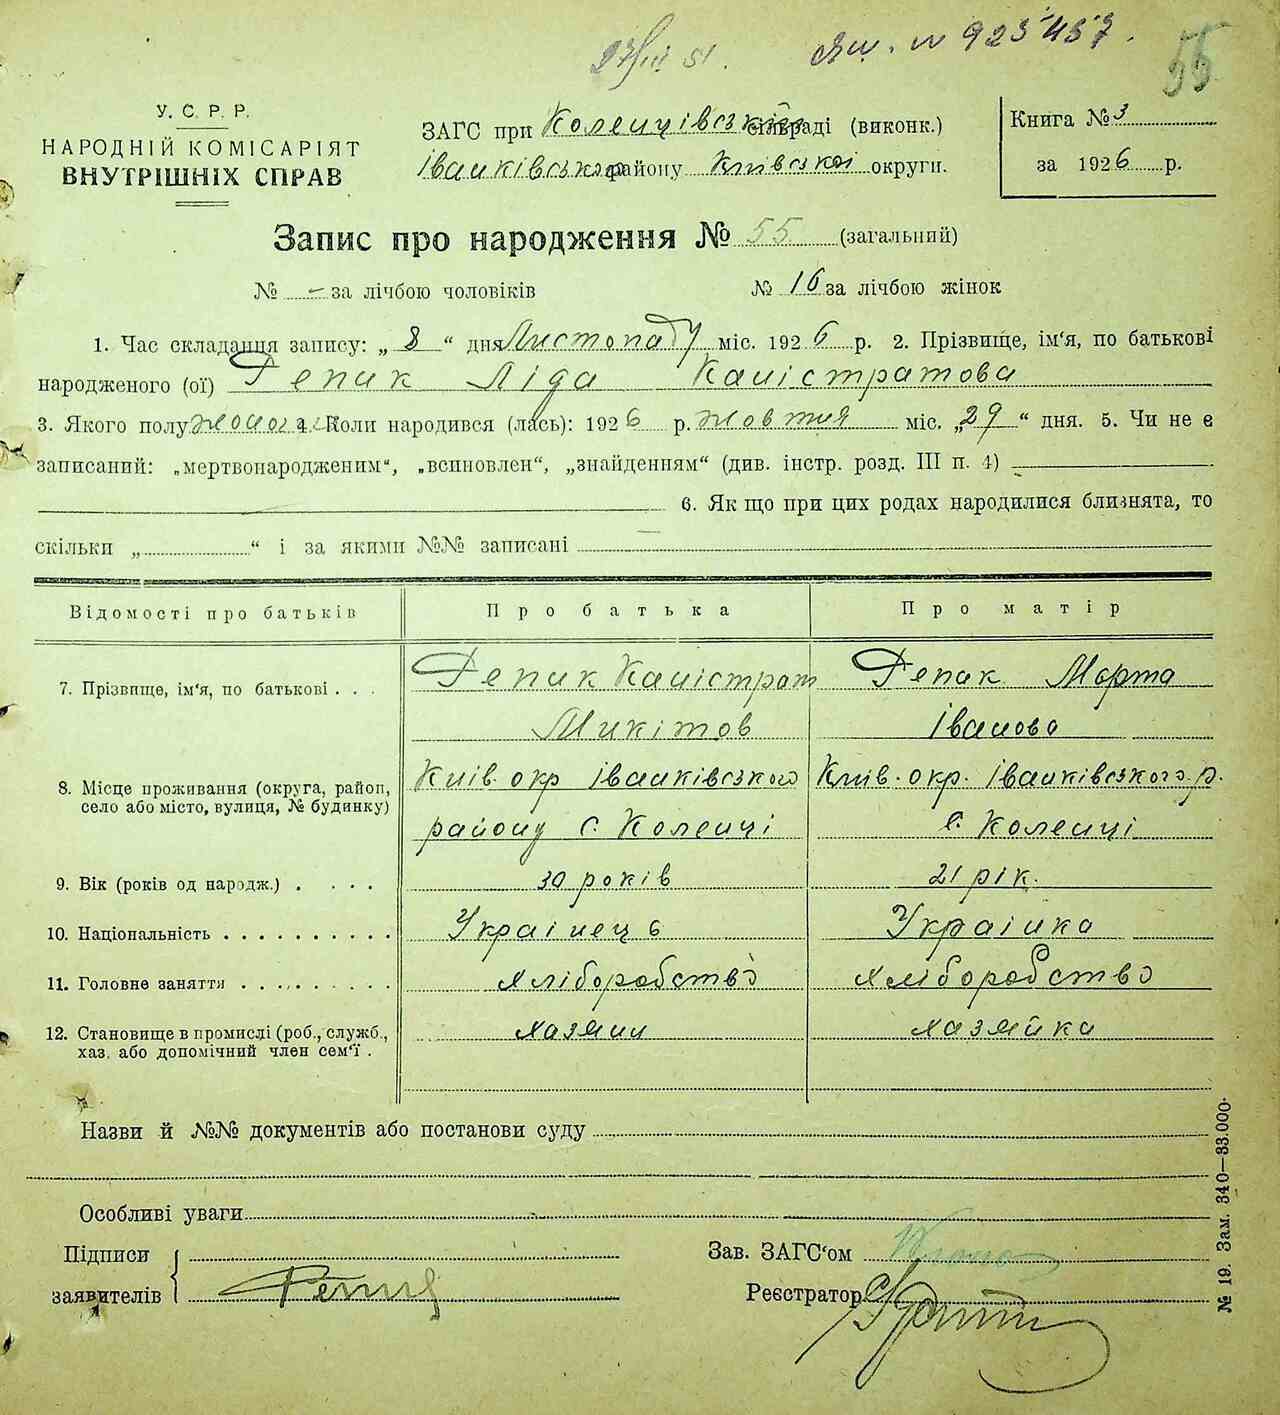 № 925457.
55
У. С. Р. Р.
НАРОДНІЙ КОМІСАРІЯТ
ВНУТРІШНІХ СПРАВ
ЗАГС при Коленцівській сільраді (виконк.)
Іванківського району Київської округи.
Книга № 3
за 1926 р.
Запис про народження № 55 (загальний)
№ - за лічбою чоловіків № 16 за лічбою жінок
1. Час складання запису: „ 8 “ дня Листопаду міс. 1926 р. 2. Прізвище, ім‘я, по батькові
народженого (ої) Репик Ліда Калістратова
3. Якого полу 4. Коли народився (лась): 1926 р. жовтня міс. „29“ дня. 5. Чи не є
записаний: „мертвонародженим“, „всиновлен“, „знайденням“ (див. інстр. розд. III п. 4)
6. Як що при цих родах народилися близнята, то
скільки „ “ і за якими №№ записані
Відомості про батьків Про батька Про матір
7. Прізвище, ім‘я, по батькові . . . Репик Калістрат Репик Марта
Микітов Іванова
8. Місце проживання (округа, район, Київ. окр Іванківського Київ. окр. Іванківського р.
село або місто, вулиця, № будинку) району с. Коленці с. Коленці
9. Вік (років од народж.) . . . . 30 років 21 рік.
10. Національність . . . . . . . . . . Українець Українка
11. Головне заняття . . . . . . . . . хліборобство хліборобство
12. Становище в промислі (роб., служб., хазяин хазяйка
хаз. або допомічний член сем‘ї .
Назви й №№ документів або постанови суду
Особливі уваги
Підписи
заявителів Репик
Зав. ЗАГС‘ом
Реєстратор
№ 19. Зам. 340—33.000.